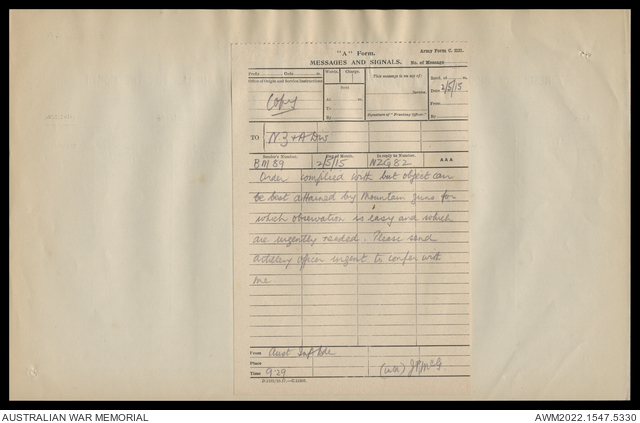 "A" Form. Army Form C. 2121.
MESSAGES AND SIGNALS. No. of Message
Prefix Code m. Words. Charge. This message is on a/c of: Recd. at m.
Office of Origin and Service Instructions. Sent Date 2/5/15
Copy At m. Service. From
To
By (Signature of "Franking Officer.") By
TO N Z & A Div
Sender's Number. Day of Month. In reply to Number. AAA
BM 89 2/5/15 NZG 82
Order complied with but object can
be best attained by Mountain guns for
which observation is easy and which
are urgently needed. Please send
artillery officer urgent to confer with
me
From Aust Inf Bde
Place
Time 9.29
AUSTRALIAN WAR MEMORIAL AWM2022.1547.5330